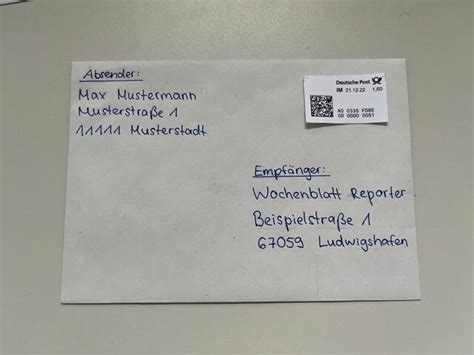 Absender:
Max Mustermann
Musterstraße 1
11111 Musterstadt
Deutsche Post
IM 21.12.22 1,60
A0 0335 FD8E
00 0000 0051
Empfänger:
Wochenblatt Reporter
Beispielstraße 1
67059 Ludwigshafen